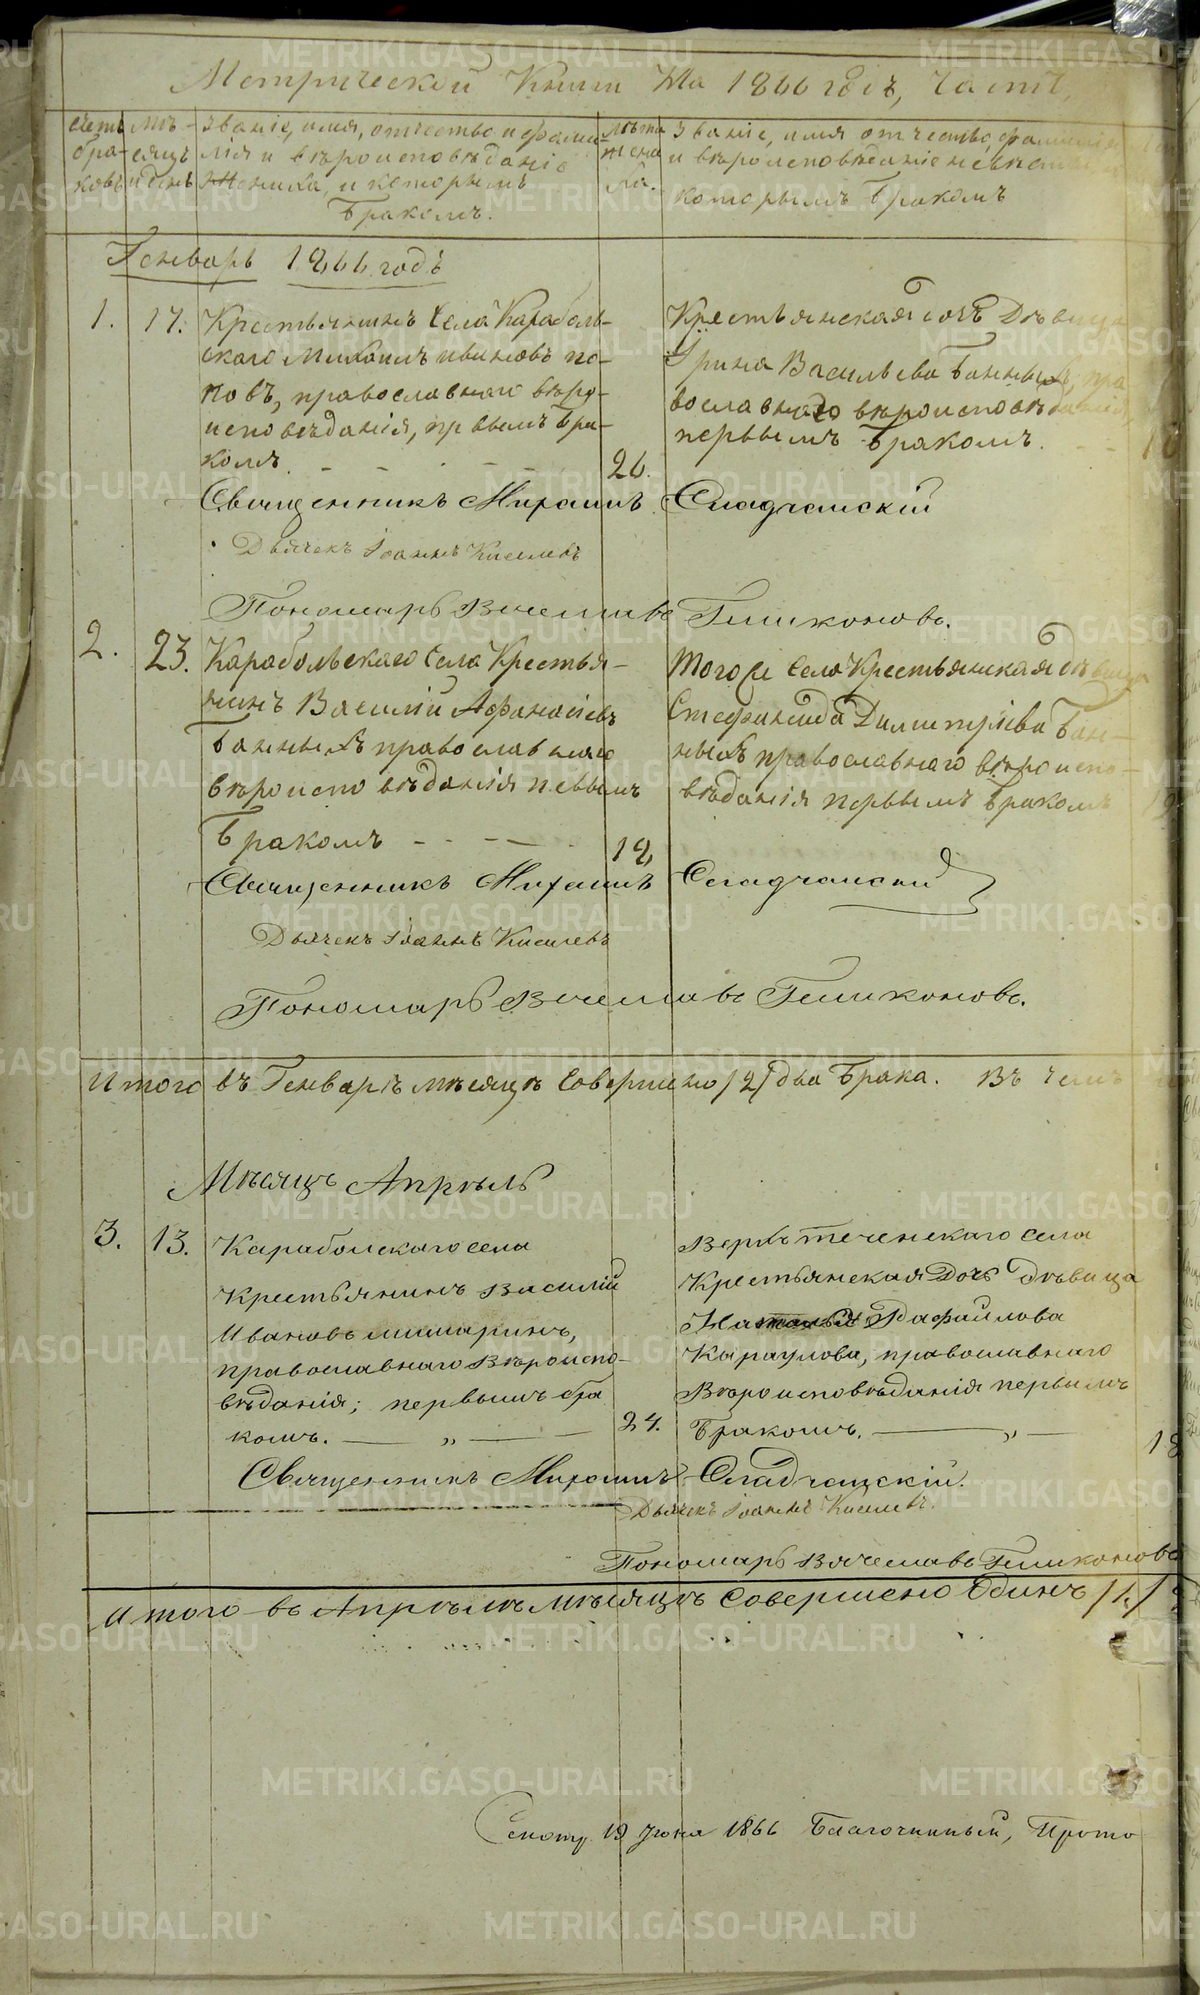 Метрической Книги На 1866 годъ, Часть,
счетъ браковъ
мѣсяцъ и день
Званіе, имя, отчество и фамилія и вѣроисповѣданіе Жениха, и которымъ бракомъ.
лѣта жениха.
Званіе, имя отчество, фамилия и вѣроисповѣданіе невѣсты, которымъ бракомъ
Генварь 1866 годъ
1. 17.
Крестьянинъ Села Караболь-
скаго Михаилъ Ивановъ По-
повъ, православнаго вѣро-
исповѣданія, првымъ бра-
комъ. 26.
Крестьянская дочь Дѣвица
Ирина Васильева Банныхъ, пра
вославнаго вѣроисповѣданія,
первымъ бракомъ.
Священникъ Михаилъ
Дьячекъ Іоаннъ Киселевъ
Пономарь Вячеславъ
2. 23.
Карабольскаго Села Крестья-
нинъ Василій Афанасіевъ
Банныхъ православнаго
вѣроисповѣданія певымъ
бракомъ 18
Тогоже Села Крестьянская дѣвица
Стефанида Димитріева Бан-
ныхъ православнаго вѣроиспо-
вѣданія первымъ бракомъ 19
Священникъ Михаилъ
Дьячекъ Іоаннъ Киселевъ
Пономарь Вячеславъ
Итого въ Генварѣ мѣсяцѣ Совершено /2/ два брака. Въ чемъ
Мѣсяцъ Апрѣль
3. 13.
Карабольскаго села
Крестьянинъ Василій
Ивановъ Шимаринъ,
православнаго Вѣроиспо-
вѣданія; первымъ бра
комъ. 24.
Верхътеченскаго села
Крестьянская Дочь дѣвица
Наталья Рафаилова
Караулова, православнаго
Вѣроисповѣданія первымъ
бракомъ. 18
Священникъ Михаилъ
Дьячекъ Іоаннъ Киселевъ.
Пономарь Вячеславъ
Итого въ Апрѣлѣ Мѣсяцѣ Совершено Одинъ /1./
19 Іюня 1866 Благочинный, Прото
METRIKI.GASO-URAL.RU